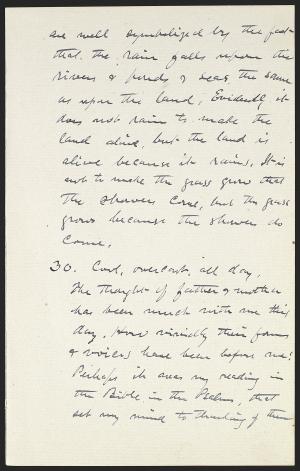 are well symbolized by the fact
that the rain falls upon the
rivers & ponds & seas the same
as upon the land. Evidently it
does not rain to make the
land alive, but the land is
alive because it rains. It is
not to make the grass grow that
the showers come, but the grass
grows because the showers do
come.
30. Cool, overcast all day.
The thought of father & mother
has been much with me this
day. How vividly their forms
& voices have been before me!
Perhaps it was my reading in
the Bible, in the Psalms, that
set my mind to thinking of them